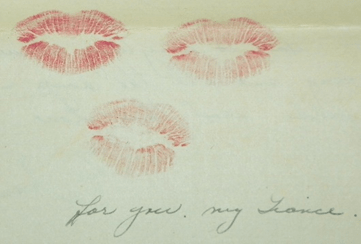 for you. my fiance.